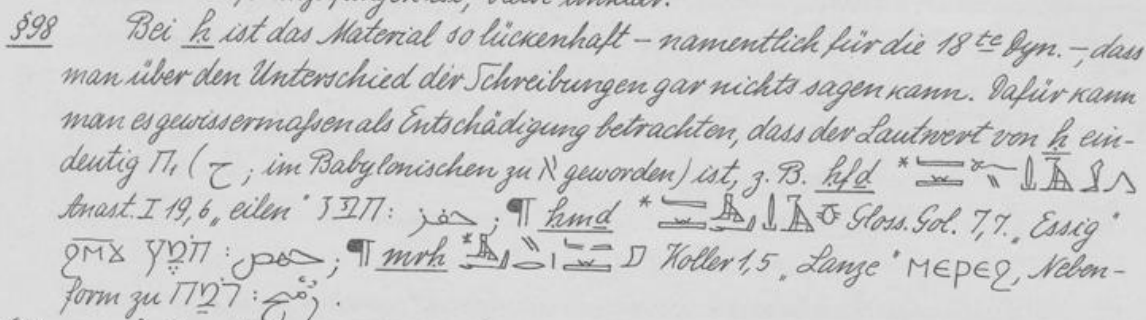 unklar.
§98 Bei ḥ ist das Material so lückenhaft – namentlich für die 18te Dyn. –, dass
man über den Unterschied der Schreibungen gar nichts sagen kann. Dafür kann
man es gewissermaßen als Entschädigung betrachten, dass der Lautwert von ḥ ein-
deutig ח₁ (ح; im Babylonischen zu א geworden) ist, z. B. ḥfd *
Anast. I 19,6 „eilen“ חפז: حفز; ¶ ḥmd * Gloss. Gol. 7,7. „Essig“
ϩⲙϫ חֹמֶץ: حمض; ¶ mrḥ * Koller 1,5 „Lanze“ ⲙⲉⲣⲉϩ, Neben-
form zu רֹמַח: رُمْح.